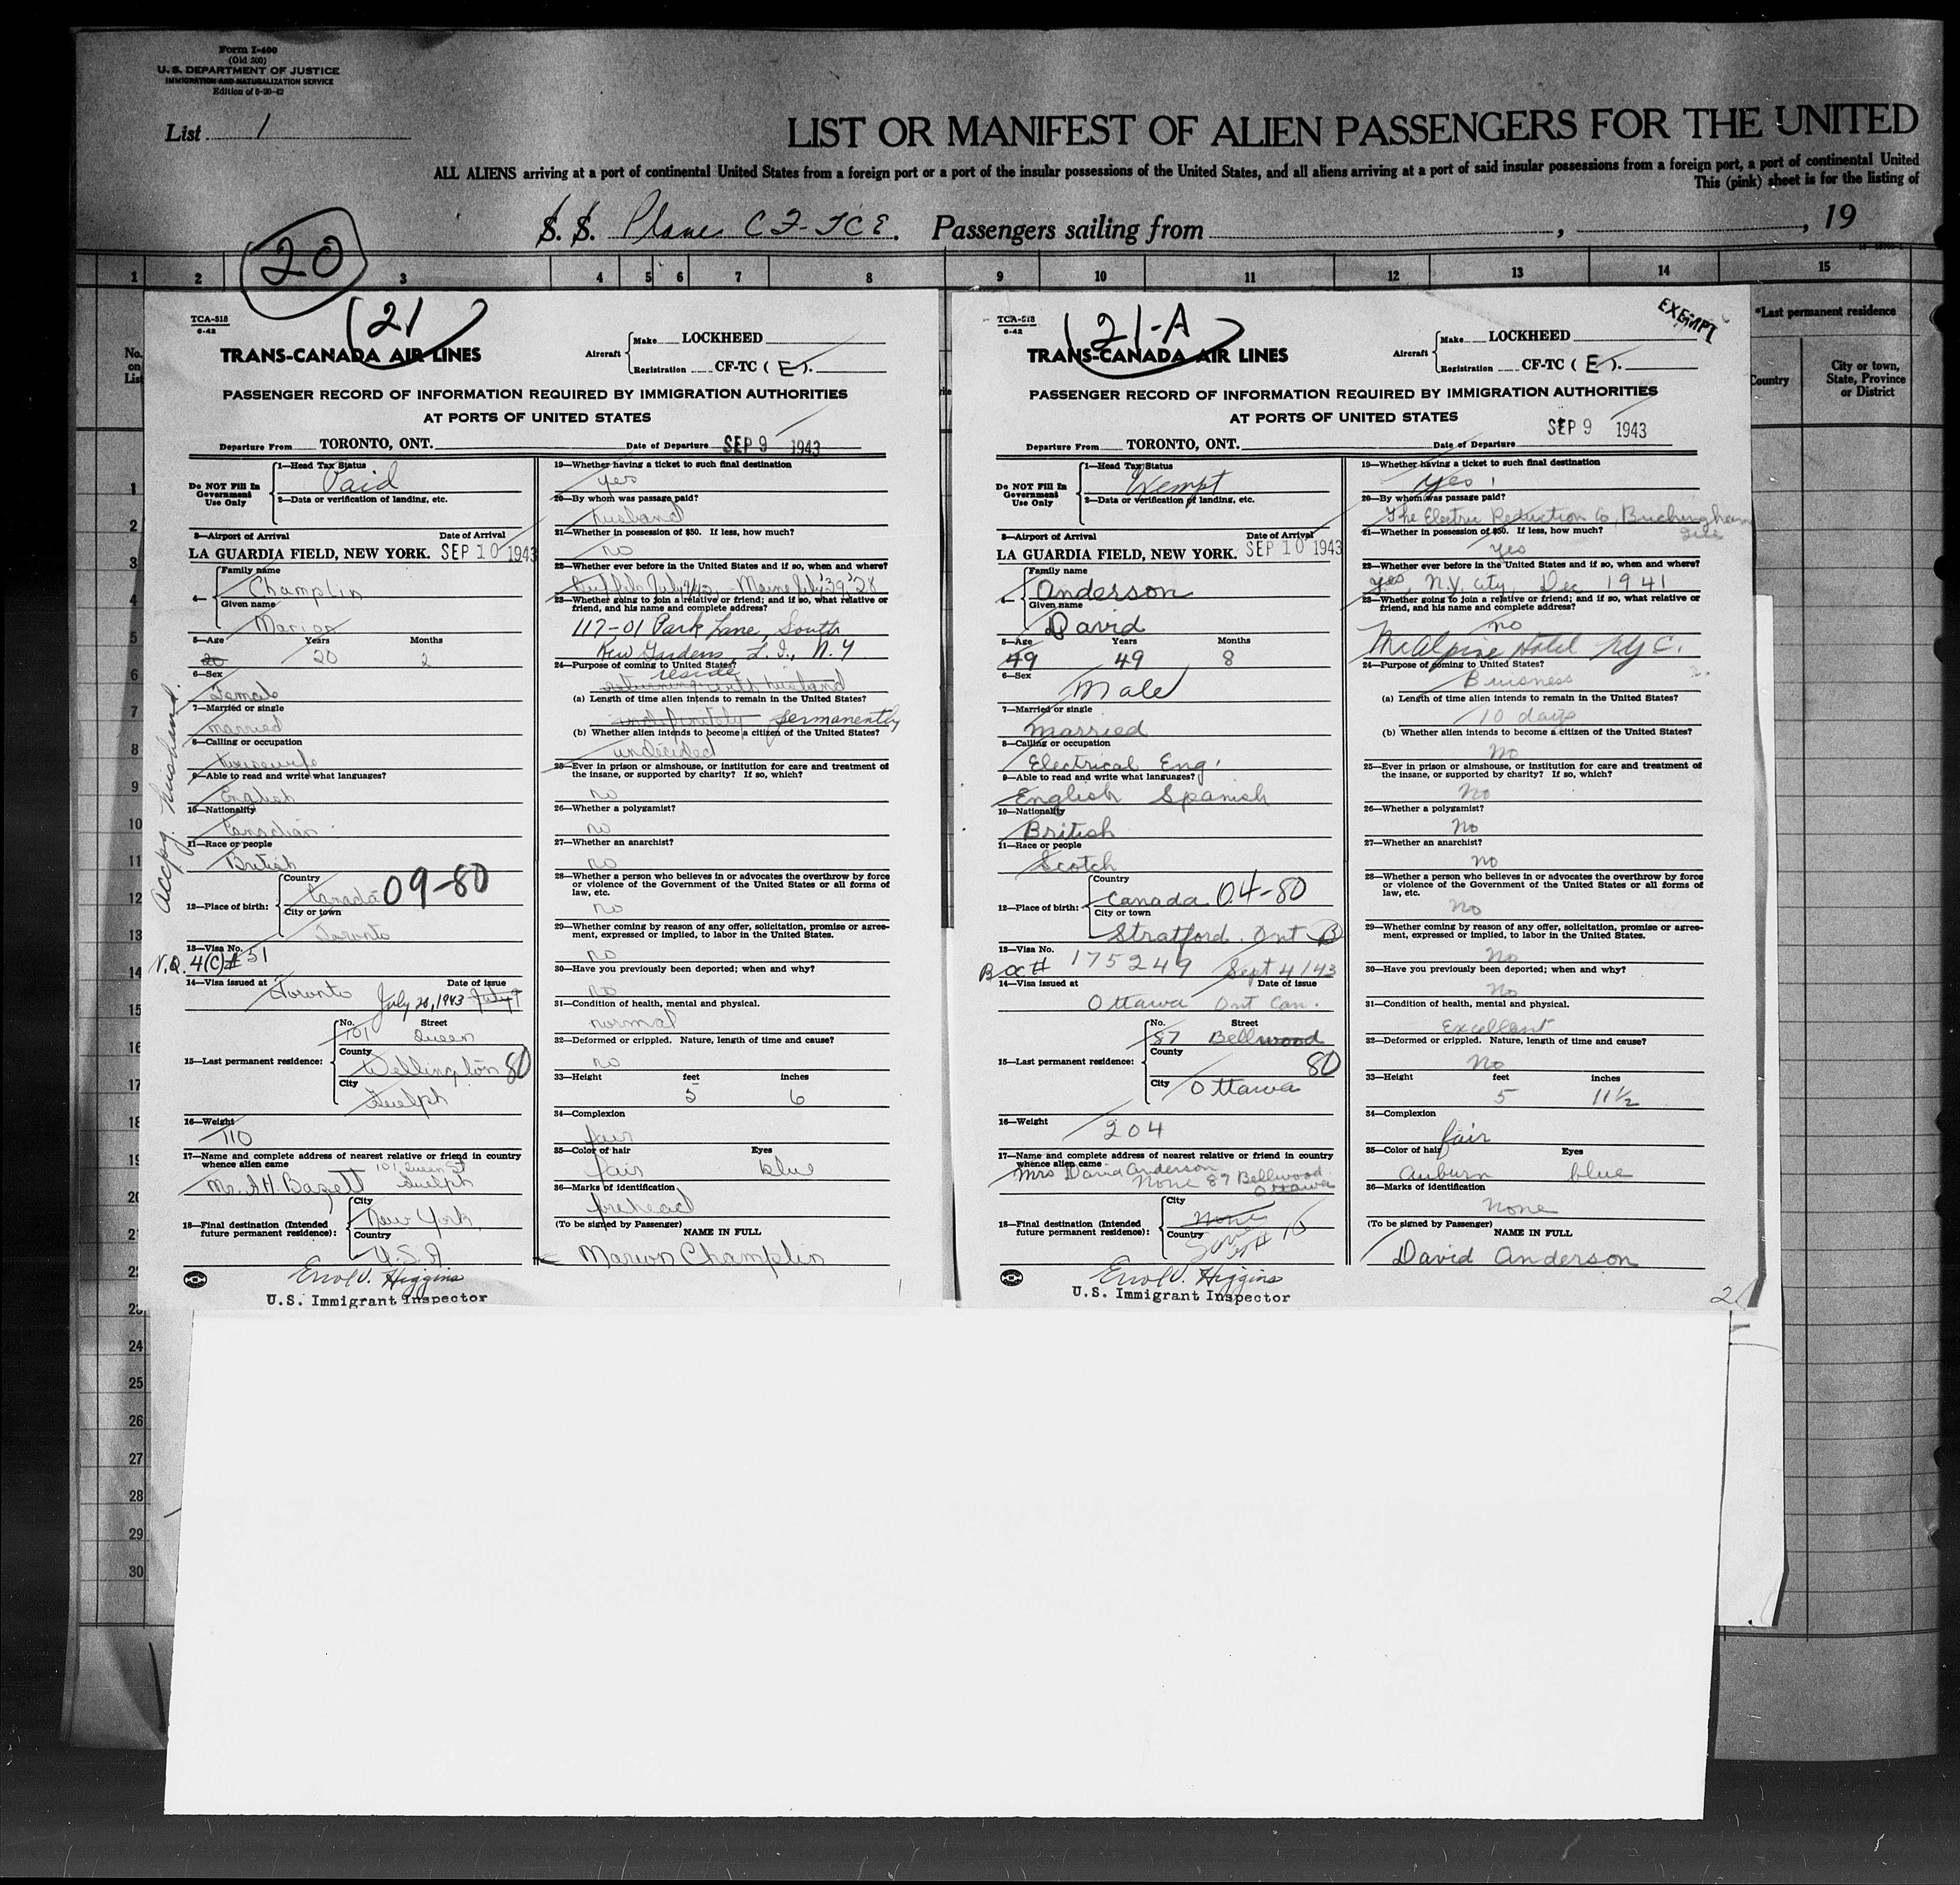 Form I-400
(Old 500)
U. S. DEPARTMENT OF JUSTICE
IMMIGRATION AND NATURALIZATION SERVICE
Edition of 5-20-42
List 1
LIST OR MANIFEST OF ALIEN PASSENGERS FOR THE UNITED
ALL ALIENS arriving at a port of continental United States from a foreign port or a port of the insular possessions of the United States, and all aliens arriving at a port of said insular possessions from a foreign port, a port of continental United
This (pink) sheet is for the listing of
S. S. Plane CF-TCE. Passengers sailing from , , 19
20
1 2 3 4 5 6 7 8 9 10 11 12 13 14 15
No. on List
*Last permanent residence
Country
City or town, State, Province or District
1
2
3
4
5
6
7
8
9
10
11
12
13
14
15
16
17
18
19
20
21
22
23
24
25
26
27
28
29
30
TCA-818
6-42
21
TRANS-CANADA AIR LINES
Aircraft
Make LOCKHEED
Registration CF-TC ( E ).
PASSENGER RECORD OF INFORMATION REQUIRED BY IMMIGRATION AUTHORITIES
AT PORTS OF UNITED STATES
Departure From TORONTO, ONT. Date of Departure SEP 9 1943
Do NOT Fill In Government Use Only
1—Head Tax Status
Paid
2—Data or verification of landing, etc.
3—Airport of Arrival Date of Arrival
LA GUARDIA FIELD, NEW YORK. SEP 10 1943
4—
Family name
Champlin
Given name
Marion
5—Age Years Months
20 20 2
6—Sex
Female
7—Married or single
married
8—Calling or occupation
housewife
9—Able to read and write what languages?
English
10—Nationality
Canadian
11—Race or people
British
12—Place of birth:
Country
Canada 09-80
City or town
Toronto
13—Visa No.
N.Q. 4(c) # 51
14—Visa issued at Date of issue
Toronto July 20, 1943
15—Last permanent residence:
No. Street
101 Queen
County
Wellington 80
City
Guelph
16—Weight
110
17—Name and complete address of nearest relative or friend in country whence alien came
101 Queen St
Mr. A.H. Bazett Guelph
18—Final destination (Intended future permanent residence):
City
New York
Country
U.S.A
Errol V. Higgins
U.S. Immigrant Inspector
Accpg. husband.
19—Whether having a ticket to such final destination
yes
20—By whom was passage paid?
husband
21—Whether in possession of $50. If less, how much?
no
22—Whether ever before in the United States and if so, when and where?
Buffalo July Maine July '39, '28
23—Whether going to join a relative or friend; and if so, what relative or friend, and his name and complete address?
117-01 Park Lane, South
Kew Gardens, L. I., N. Y
24—Purpose of coming to United States?
reside
returning with husband
(a) Length of time alien intends to remain in the United States?
indefinitely permanently
(b) Whether alien intends to become a citizen of the United States?
undecided
25—Ever in prison or almshouse, or institution for care and treatment of the insane, or supported by charity? If so, which?
no
26—Whether a polygamist?
no
27—Whether an anarchist?
no
28—Whether a person who believes in or advocates the overthrow by force or violence of the Government of the United States or all forms of law, etc.
no
29—Whether coming by reason of any offer, solicitation, promise or agreement, expressed or implied, to labor in the United States.
no
30—Have you previously been deported; when and why?
no
31—Condition of health, mental and physical.
normal
32—Deformed or crippled. Nature, length of time and cause?
no
33—Height feet inches
5 6
34—Complexion
fair
35—Color of hair Eyes
fair blue
36—Marks of identification
forehead
(To be signed by Passenger) NAME IN FULL
Marion Champlin
TCA-818
6-42
21-A
EXEMPT
TRANS-CANADA AIR LINES
Aircraft
Make LOCKHEED
Registration CF-TC ( E ).
PASSENGER RECORD OF INFORMATION REQUIRED BY IMMIGRATION AUTHORITIES
AT PORTS OF UNITED STATES
Departure From TORONTO, ONT. Date of Departure SEP 9 1943
Do NOT Fill In Government Use Only
1—Head Tax Status
Exempt
2—Data or verification of landing, etc.
3—Airport of Arrival Date of Arrival
LA GUARDIA FIELD, NEW YORK. SEP 10 1943
4—
Family name
Anderson
Given name
David
5—Age Years Months
49 49 8
6—Sex
Male
7—Married or single
Married
8—Calling or occupation
Electrical Eng.
9—Able to read and write what languages?
English Spanish
10—Nationality
British
11—Race or people
Scotch
12—Place of birth:
Country
Canada 04-80
City or town
Stratford. Ont B
13—Visa No.
B cc # 175249 Sept 4/43
14—Visa issued at Date of issue
Ottawa Ont Can.
15—Last permanent residence:
No. Street
87 Bellwood
County
80
City
Ottawa
16—Weight
204
17—Name and complete address of nearest relative or friend in country whence alien came
Mrs David Anderson
None 87 Bellwood
Ottawa
18—Final destination (Intended future permanent residence):
City
None
Country
Same as # 15
Errol V. Higgins
U.S. Immigrant Inspector
19—Whether having a ticket to such final destination
Yes
20—By whom was passage paid?
The Electric Reduction Co, Buckingham
Que
21—Whether in possession of $50. If less, how much?
Yes
22—Whether ever before in the United States and if so, when and where?
Yes, N.Y. City Dec 1941
23—Whether going to join a relative or friend; and if so, what relative or friend, and his name and complete address?
no
McAlpine Hotel NYC.
24—Purpose of coming to United States?
Buisness
(a) Length of time alien intends to remain in the United States?
10 days
(b) Whether alien intends to become a citizen of the United States?
No
25—Ever in prison or almshouse, or institution for care and treatment of the insane, or supported by charity? If so, which?
No
26—Whether a polygamist?
No
27—Whether an anarchist?
no
28—Whether a person who believes in or advocates the overthrow by force or violence of the Government of the United States or all forms of law, etc.
No
29—Whether coming by reason of any offer, solicitation, promise or agreement, expressed or implied, to labor in the United States.
No
30—Have you previously been deported; when and why?
No
31—Condition of health, mental and physical.
Excellent
32—Deformed or crippled. Nature, length of time and cause?
No
33—Height feet inches
5 11½
34—Complexion
fair
35—Color of hair Eyes
Auburn blue
36—Marks of identification
None
(To be signed by Passenger) NAME IN FULL
David Anderson
2